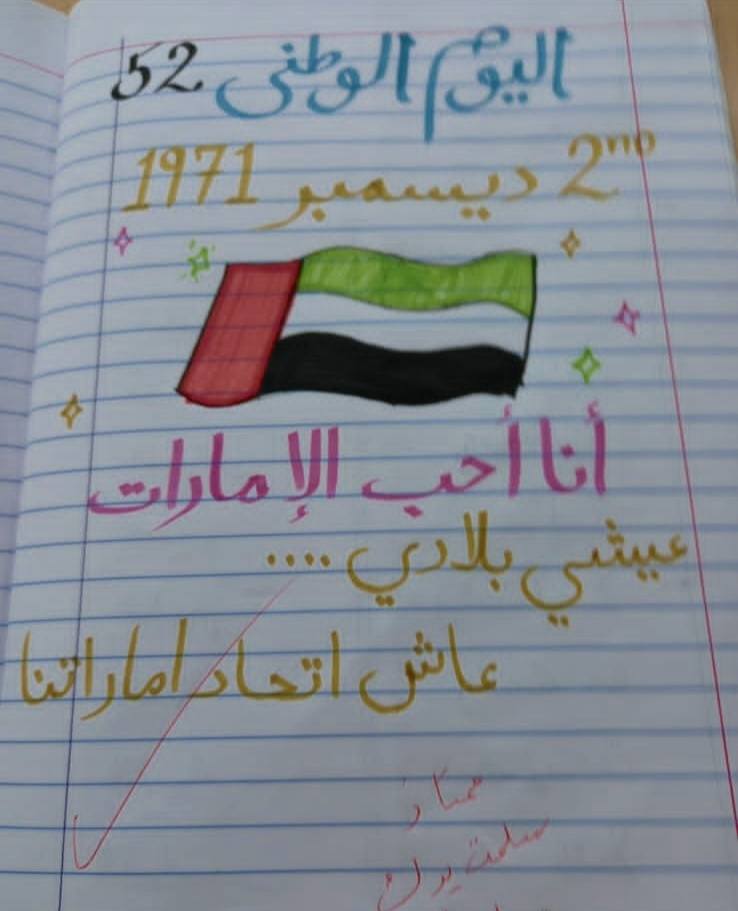 اليوم الوطني 52
2nd ديسمبر 1971
أنا أحب الإمارات
عيشي بلادي ....
عاش اتحاد اماراتنا
ممتاز
سلمت يداك